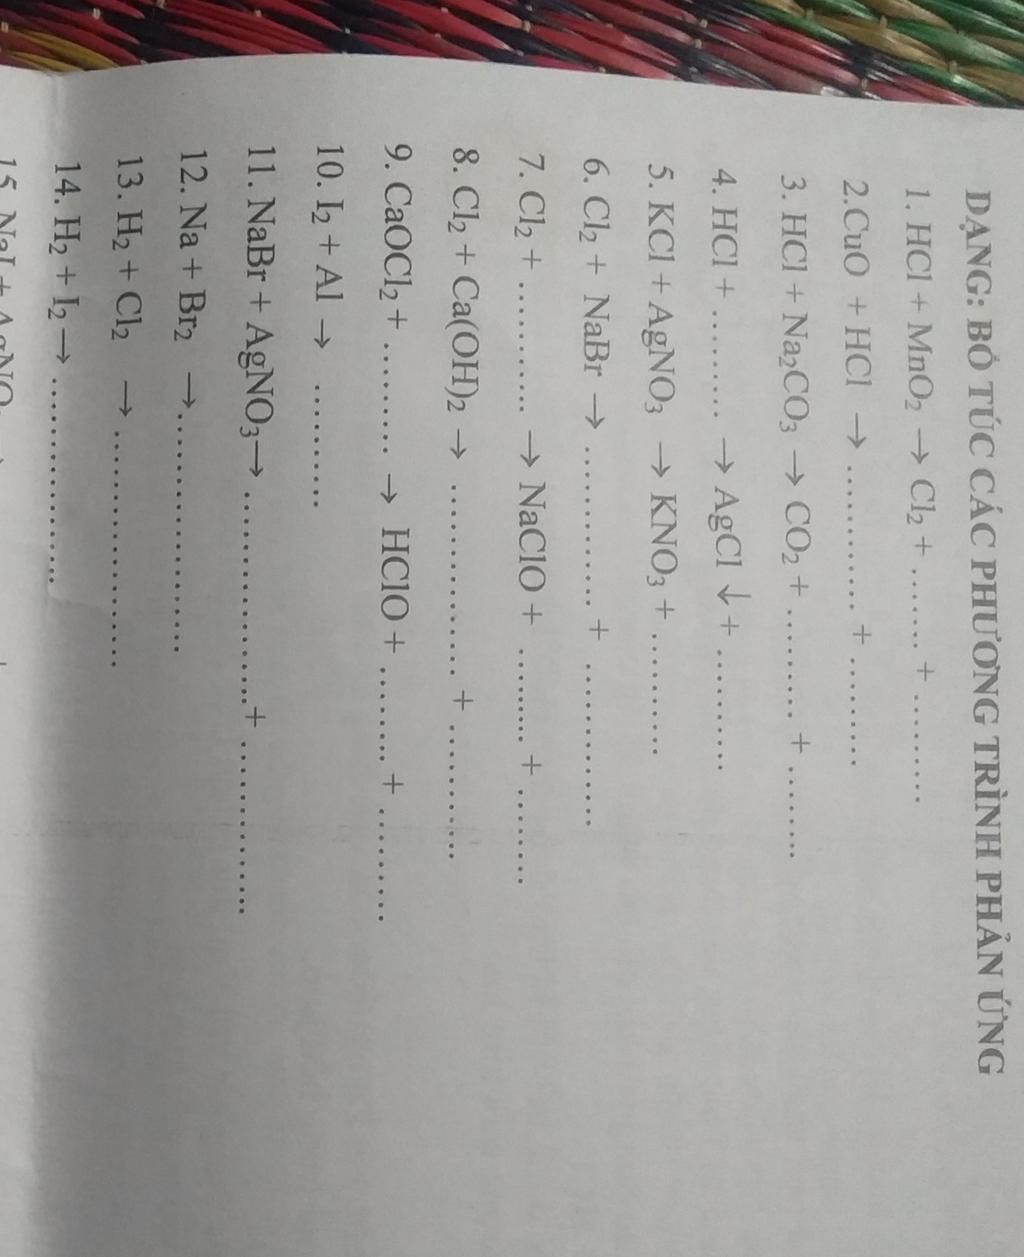 DẠNG: BỔ TÚC CÁC PHƯƠNG TRÌNH PHẢN ỨNG
1. HCl + MnO₂ → Cl₂ + ....... + .........
2.CuO + HCl → ............ + ........
3. HCl + Na₂CO₃ → CO₂ + .......... + ........
4. HCl + ......... → AgCl ↓ + ..........
5. KCl + AgNO₃ → KNO₃ + ..........
6. Cl₂ + NaBr → ............. + .............
7. Cl₂ + ........... → NaClO + ........ + .........
8. Cl₂ + Ca(OH)₂ → ................ + ...........
9. CaOCl₂ + ......... → HClO + ........ + .........
10. I₂ + Al → ...........
11. NaBr + AgNO₃→ .................+ ..............
12. Na + Br₂ →..................
13. H₂ + Cl₂ → ..................
14. H₂ + I₂→ ..................
15. NaI + AgNO₃ → +